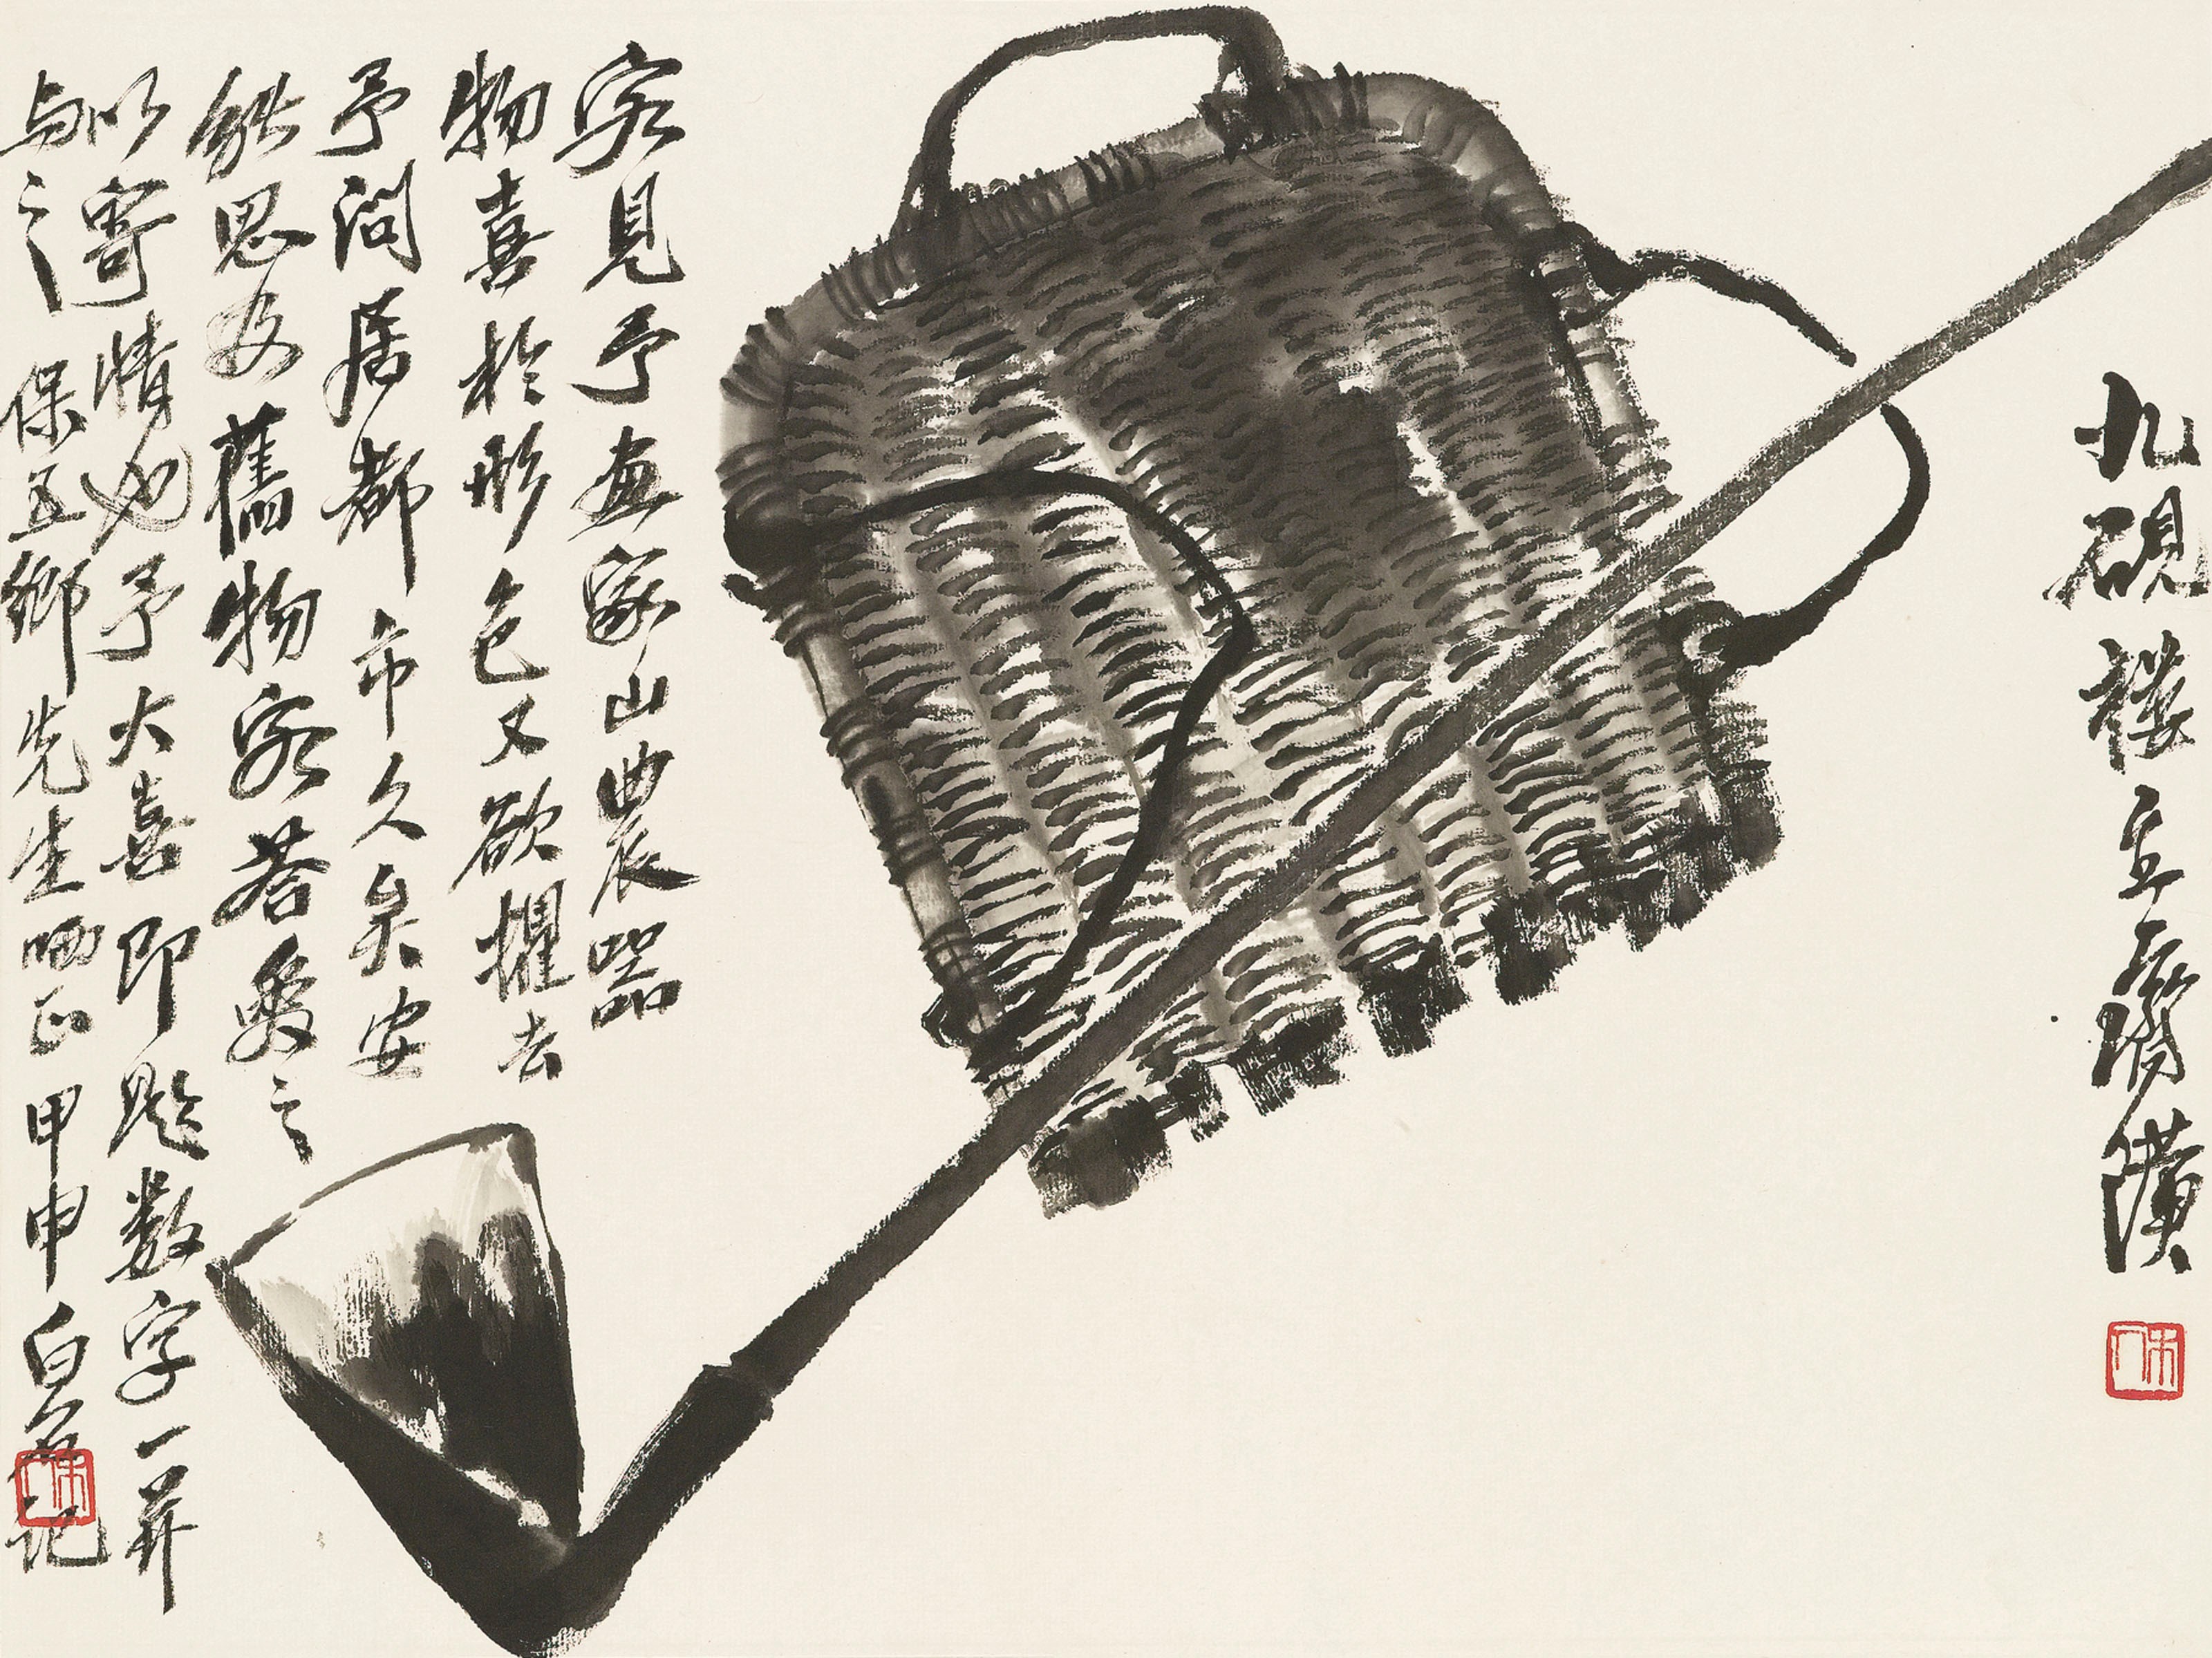 九硯樓主齊璜
木人
客見予畫家山農器
物喜於形色又欲攫去
予問居都市久矣安
能思及舊物客荅愛之
以寄情也予大喜即題数字一並
与之 保五鄉先生哂正甲申白石記
木人